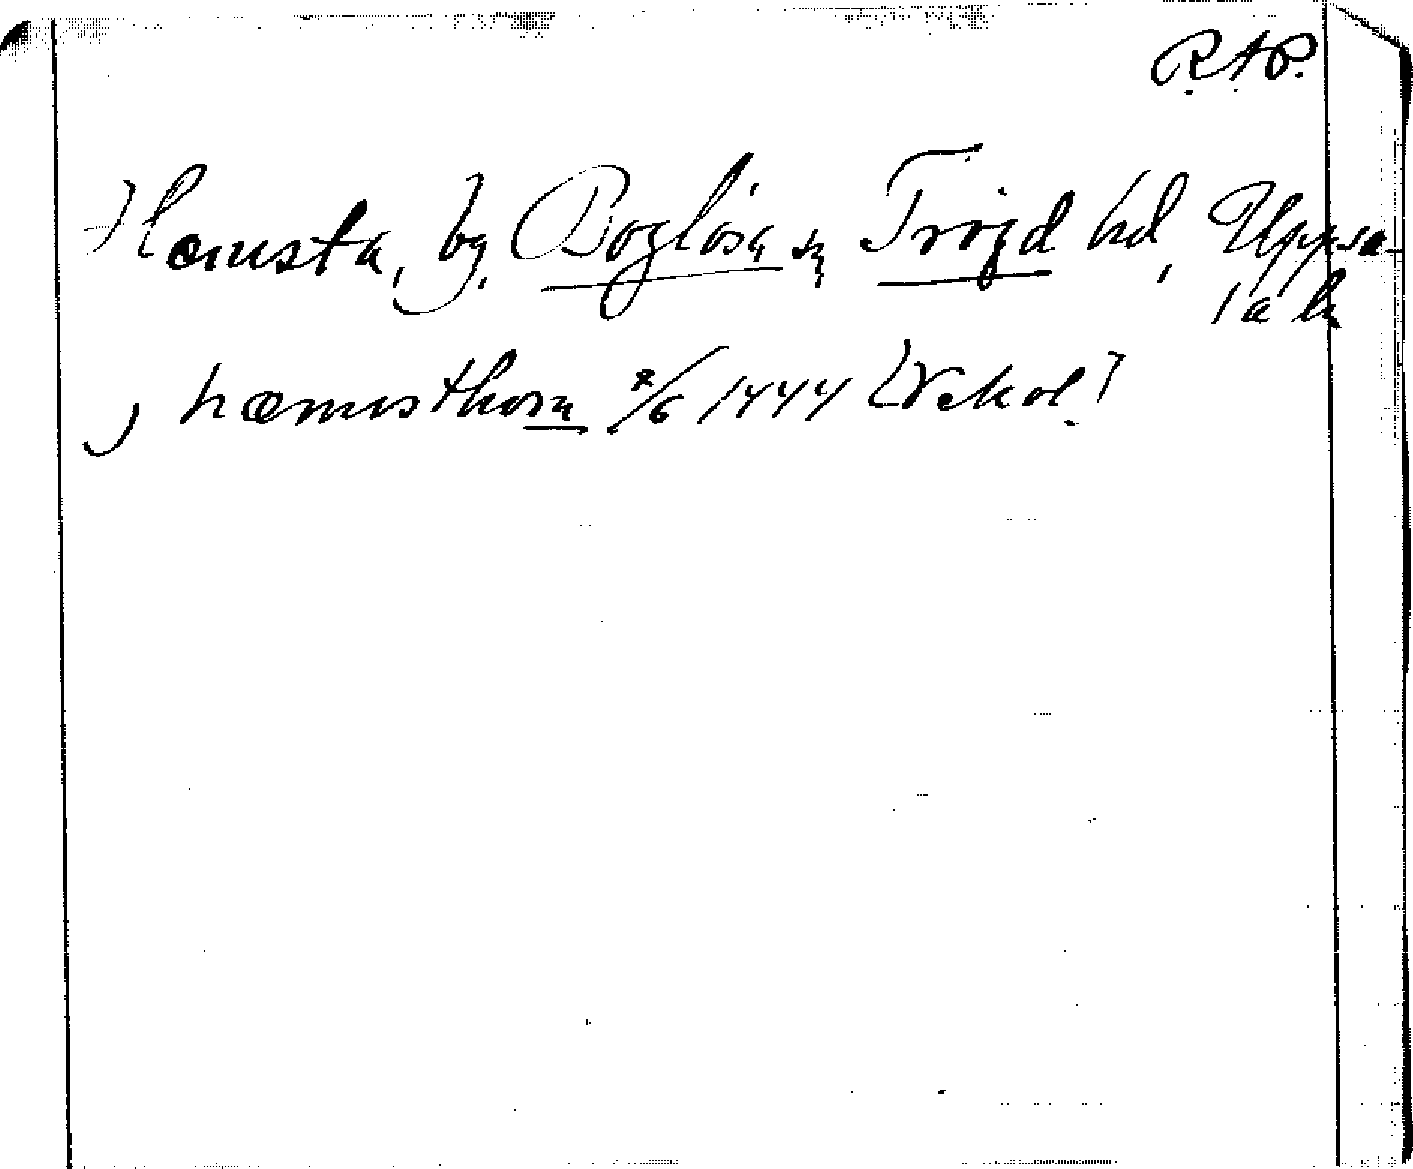 R.A.P.
Hæmsta, by, Boglösa sn, Trögd hd, Uppsa-
la ln
, hæmisthom 2/6 1444 [Vekol?